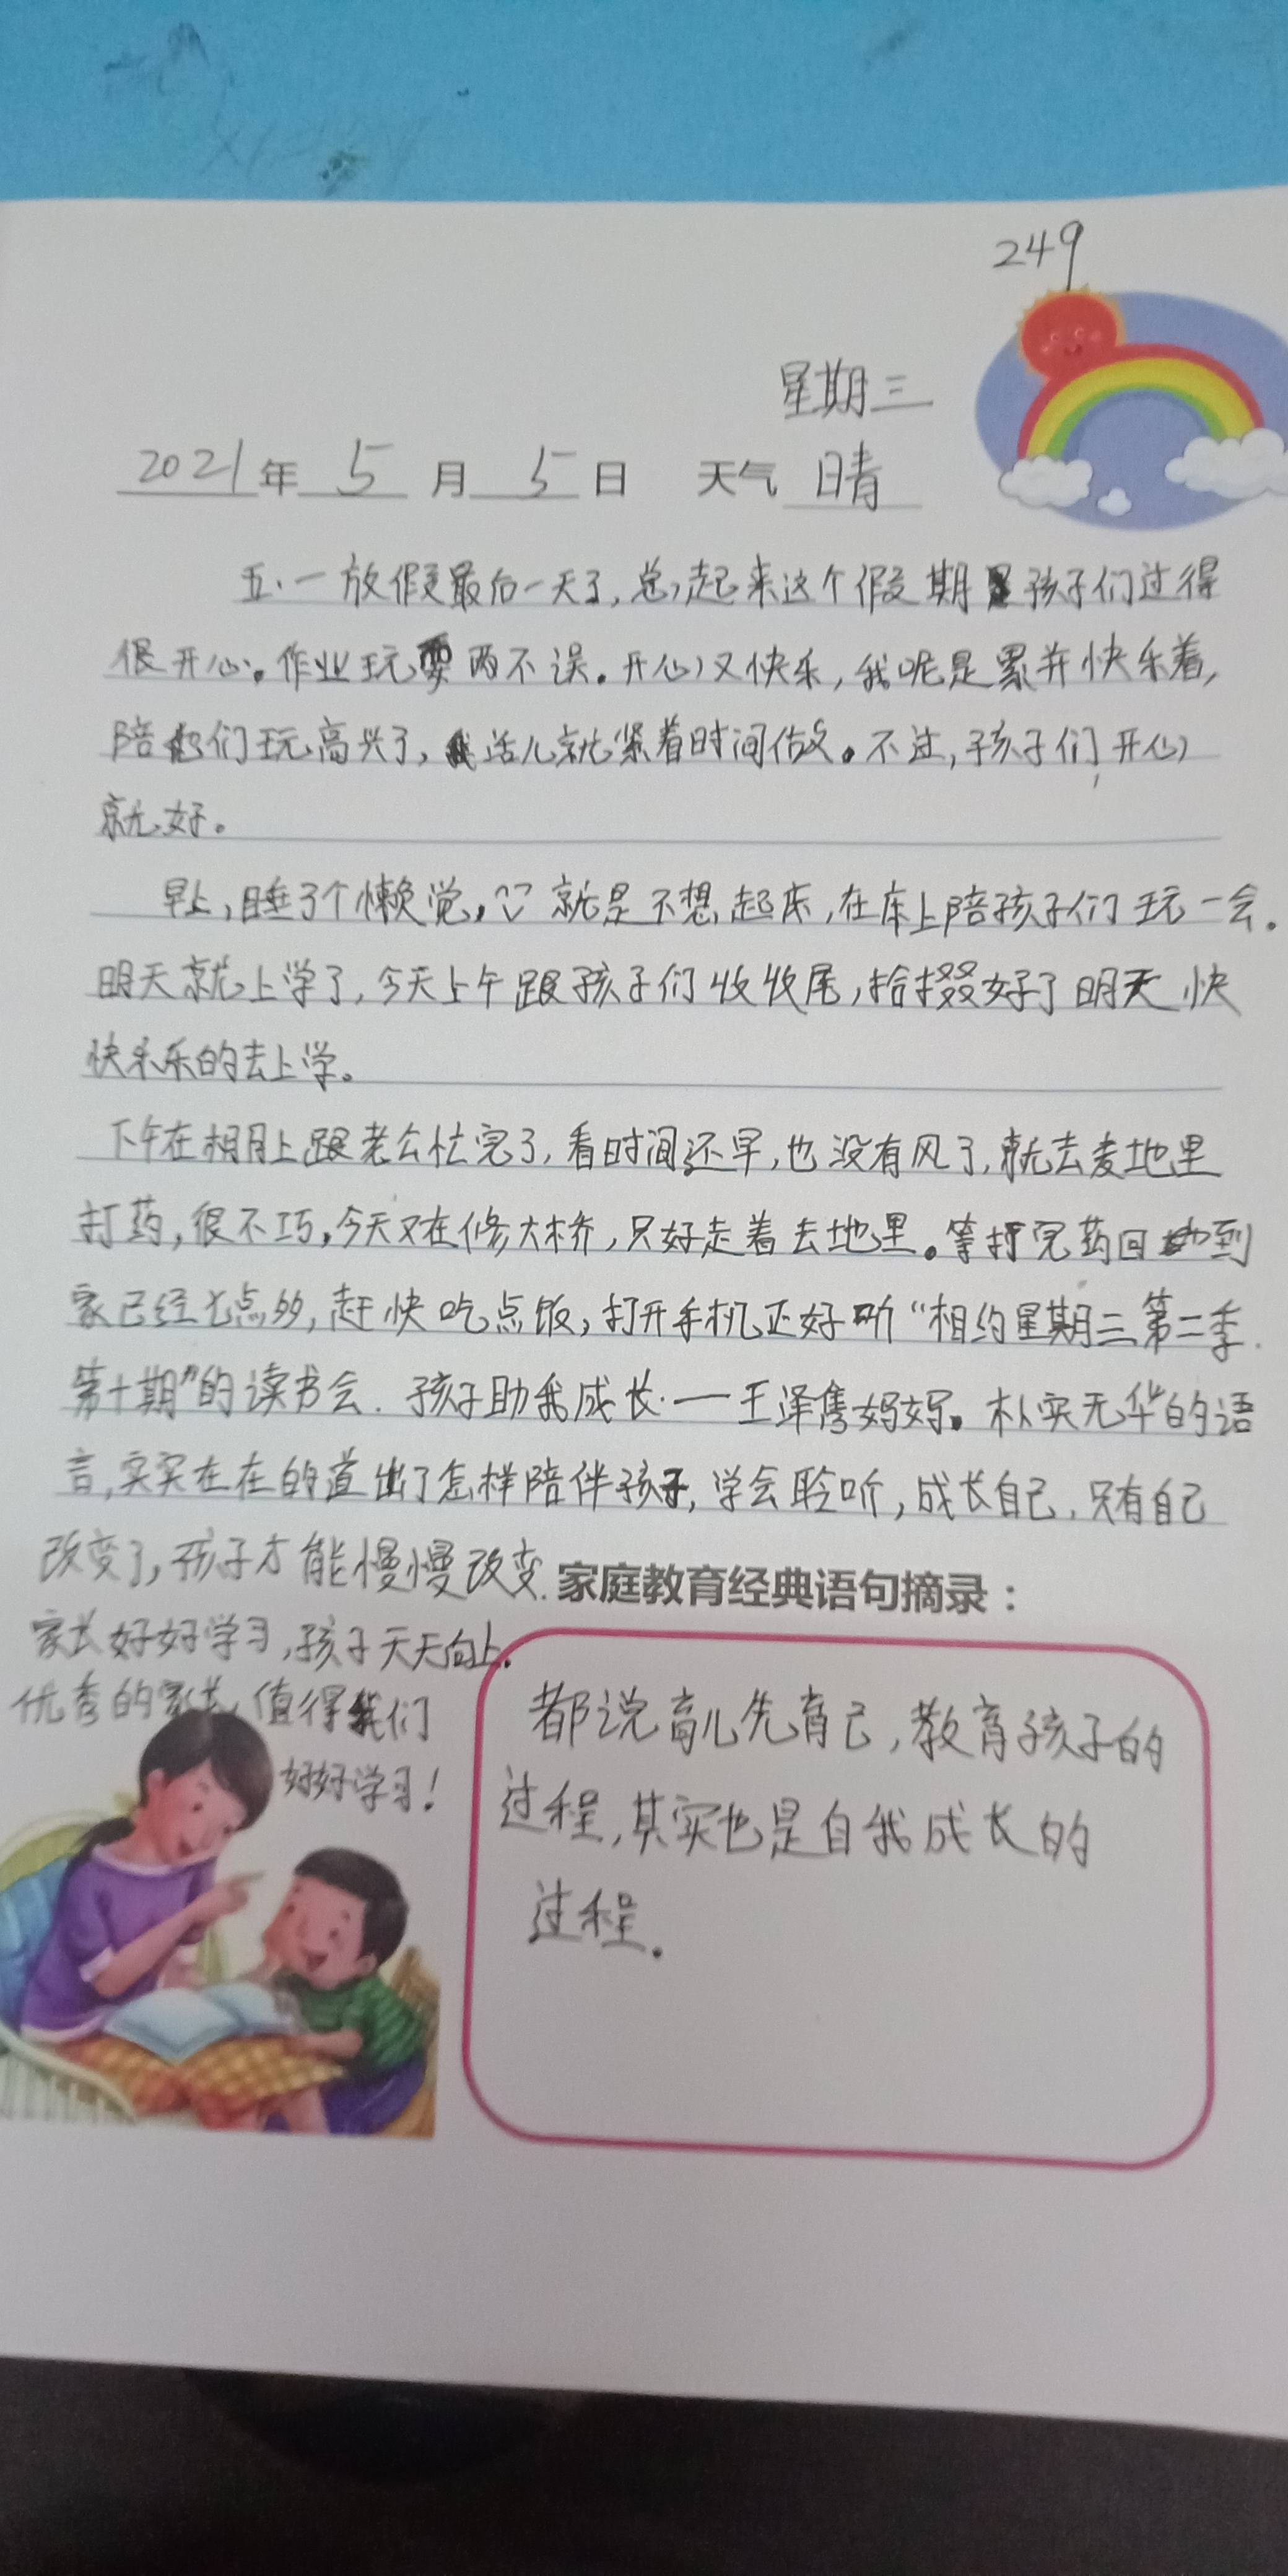 249
星期三
2021年 5 月 5 日 天气 晴
五·一放假最后一天了,总起来这个假期孩子们过得
很开心。作业玩耍两不误。开心又快乐,我呢是累并快乐着,
陪他们玩高兴了,活儿就紧着时间做。不过,孩子们开心
就好。
早上,睡了个懒觉,就是不想起床,在床上陪孩子们玩一会。
明天就上学了,今天上午跟孩子们收收尾,拾掇好了明天快
快乐乐的去上学。
下午在棚上跟老公忙完了,看时间还早,也没有风了,就去麦地里
打药,很不巧,今天又在修大桥,只好走着去地里。等打完药回到
家已经七点多,赶快吃点饭,打开手机正好听“相约星期三第二季
第十期”的读书会.孩子助我成长·一王泽隽妈妈。朴实无华的语
言,实实在在的道出了怎样陪伴孩子,学会聆听,成长自己,只有自己
改变了,孩子才能慢慢改变.
家长好好学习,孩子天天向上。
优秀的家长,值得我们
好好学习!
家庭教育经典语句摘录:
都说育儿先育己,教育孩子的
过程,其实也是自我成长的
过程.